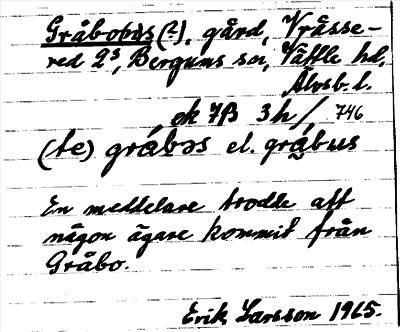 Gråbobus (?), gård, Vråsse-
red 2³, Bergums sn, Vättle hd,
Älvsb. l.
ek 7B 3h/, 746
(te) gråbəs el. gråbus
En meddelare trodde att
någon ägare kommit från
Gråbo.
Erik Larsson 1965.